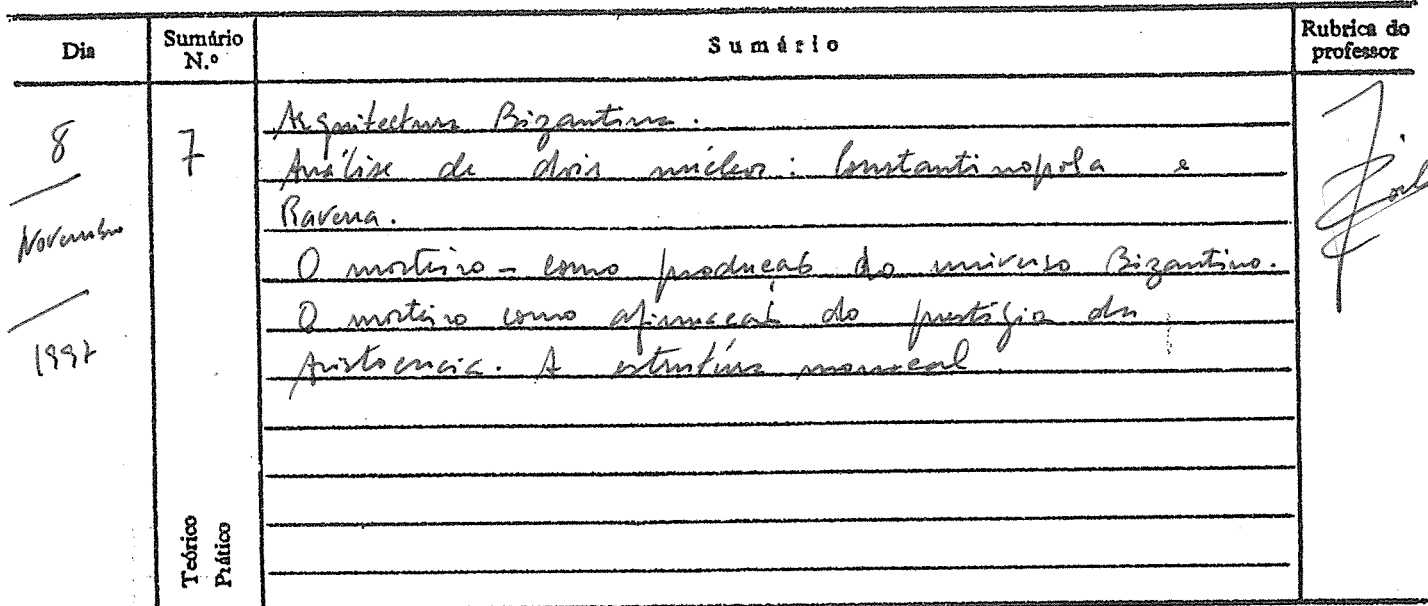 Dia
Sumário N.º
Sumário
Rubrica do professor
8
Novembro
1997
7
Arquitectura Bizantina.
Análise de dois núcleos: Constantinopola e
Ravena.
O mosteiro - como producaõ do universo Bizantino.
O mosteiro como afirmacaõ do prestígio da
Aristocracia. A estrutura monacal
Teórico
Prático